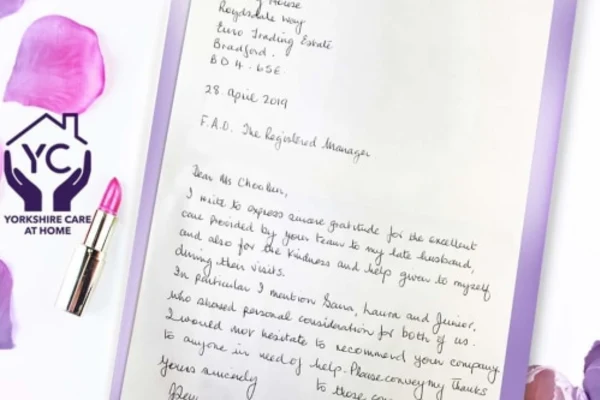 House
Roydsdale Way
Euro Trading Estate
Bradford.
BD4. 6SE.
28. April 2019
F.A.O. The Registered Manager
Dear Ms
I write to express sincere gratitude for the excellent
care provided by your team to my late husband,
and also for the kindness and help given to myself
during their visits.
In particular I mention Sara, Laura and Junior,
who showed personal consideration for both of us.
I would not hesitate to recommend your company
to anyone in need of help. Please convey my thanks
Yours sincerely to those
YC
YORKSHIRE CARE
AT HOME